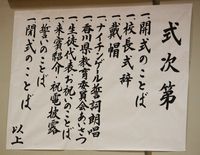 式次第
一、開式のことば
一、校長式辞
一、戴帽
一、ナイチンゲール誓詞朗唱
一、香川県教育委員会あいさつ
一、生徒代表お祝いのことば
一、来賓紹介・祝電披露
一、誓いのことば
一、閉式のことば
以上